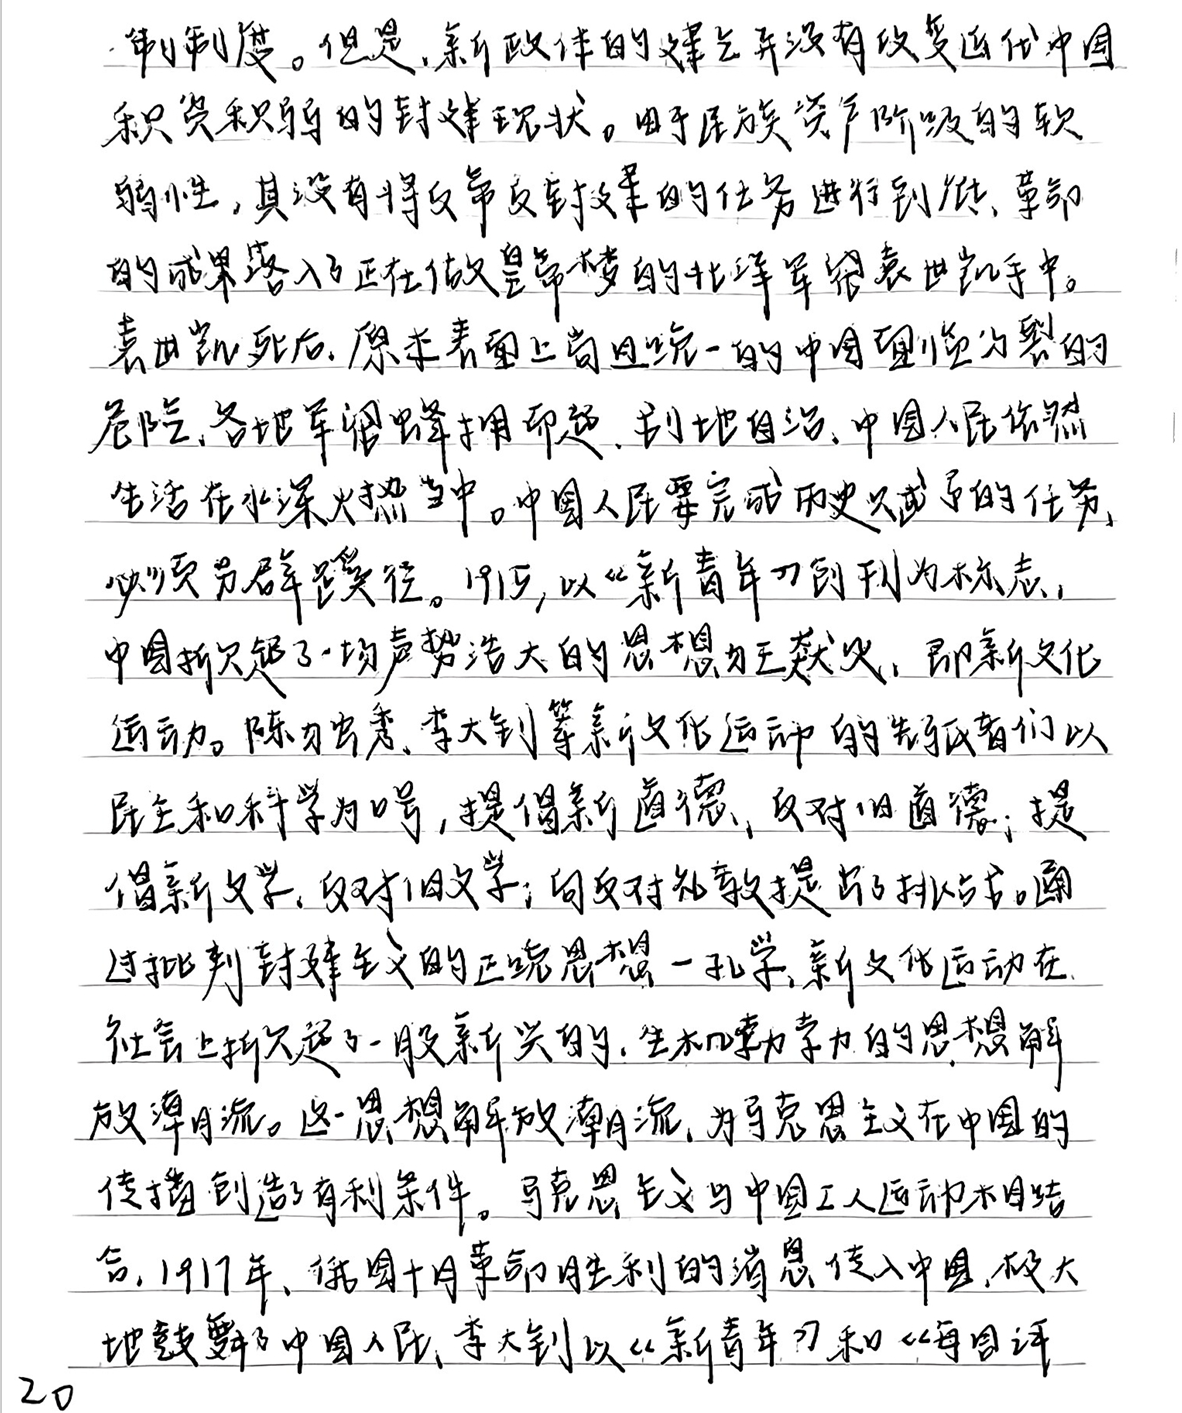 制制度。但是，新政体的建立并没有改变近代中国
积贫积弱的封建现状。由于民族资产阶级的软
弱性，其没有将反帝反封建的任务进行到底，革命
的成果落入了正在做皇帝梦的北洋军阀袁世凯手中。
袁世凯死后，原来表面上尚且统一的中国面临分裂的
危险，各地军阀蜂拥而起，割地自治，中国人民依然
生活在水深火热当中。中国人民要完成历史赋予的任务，
必须另辟蹊径。1915，以《新青年》创刊为标志，
中国掀起了一场声势浩大的思想为主，即新文化
运动。陈独秀、李大钊等新文化运动的先驱者们以
民主和科学为口号，提倡新道德，反对旧道德；提
倡新文学，反对旧文学；向反对礼教提出了挑战。通
过批判封建主义的正统思想一孔学，新文化运动在
社会上掀起了一股新兴的，生机勃勃的思想解
放潮流。这一思想解放潮流，为马克思主义在中国的
传播创造了有利条件。马克思主义与中国工人运动相结
合，1917年，俄国十月革命胜利的消息传入中国，极大
地鼓舞了中国人民，李大钊以《新青年》和《每周评
20